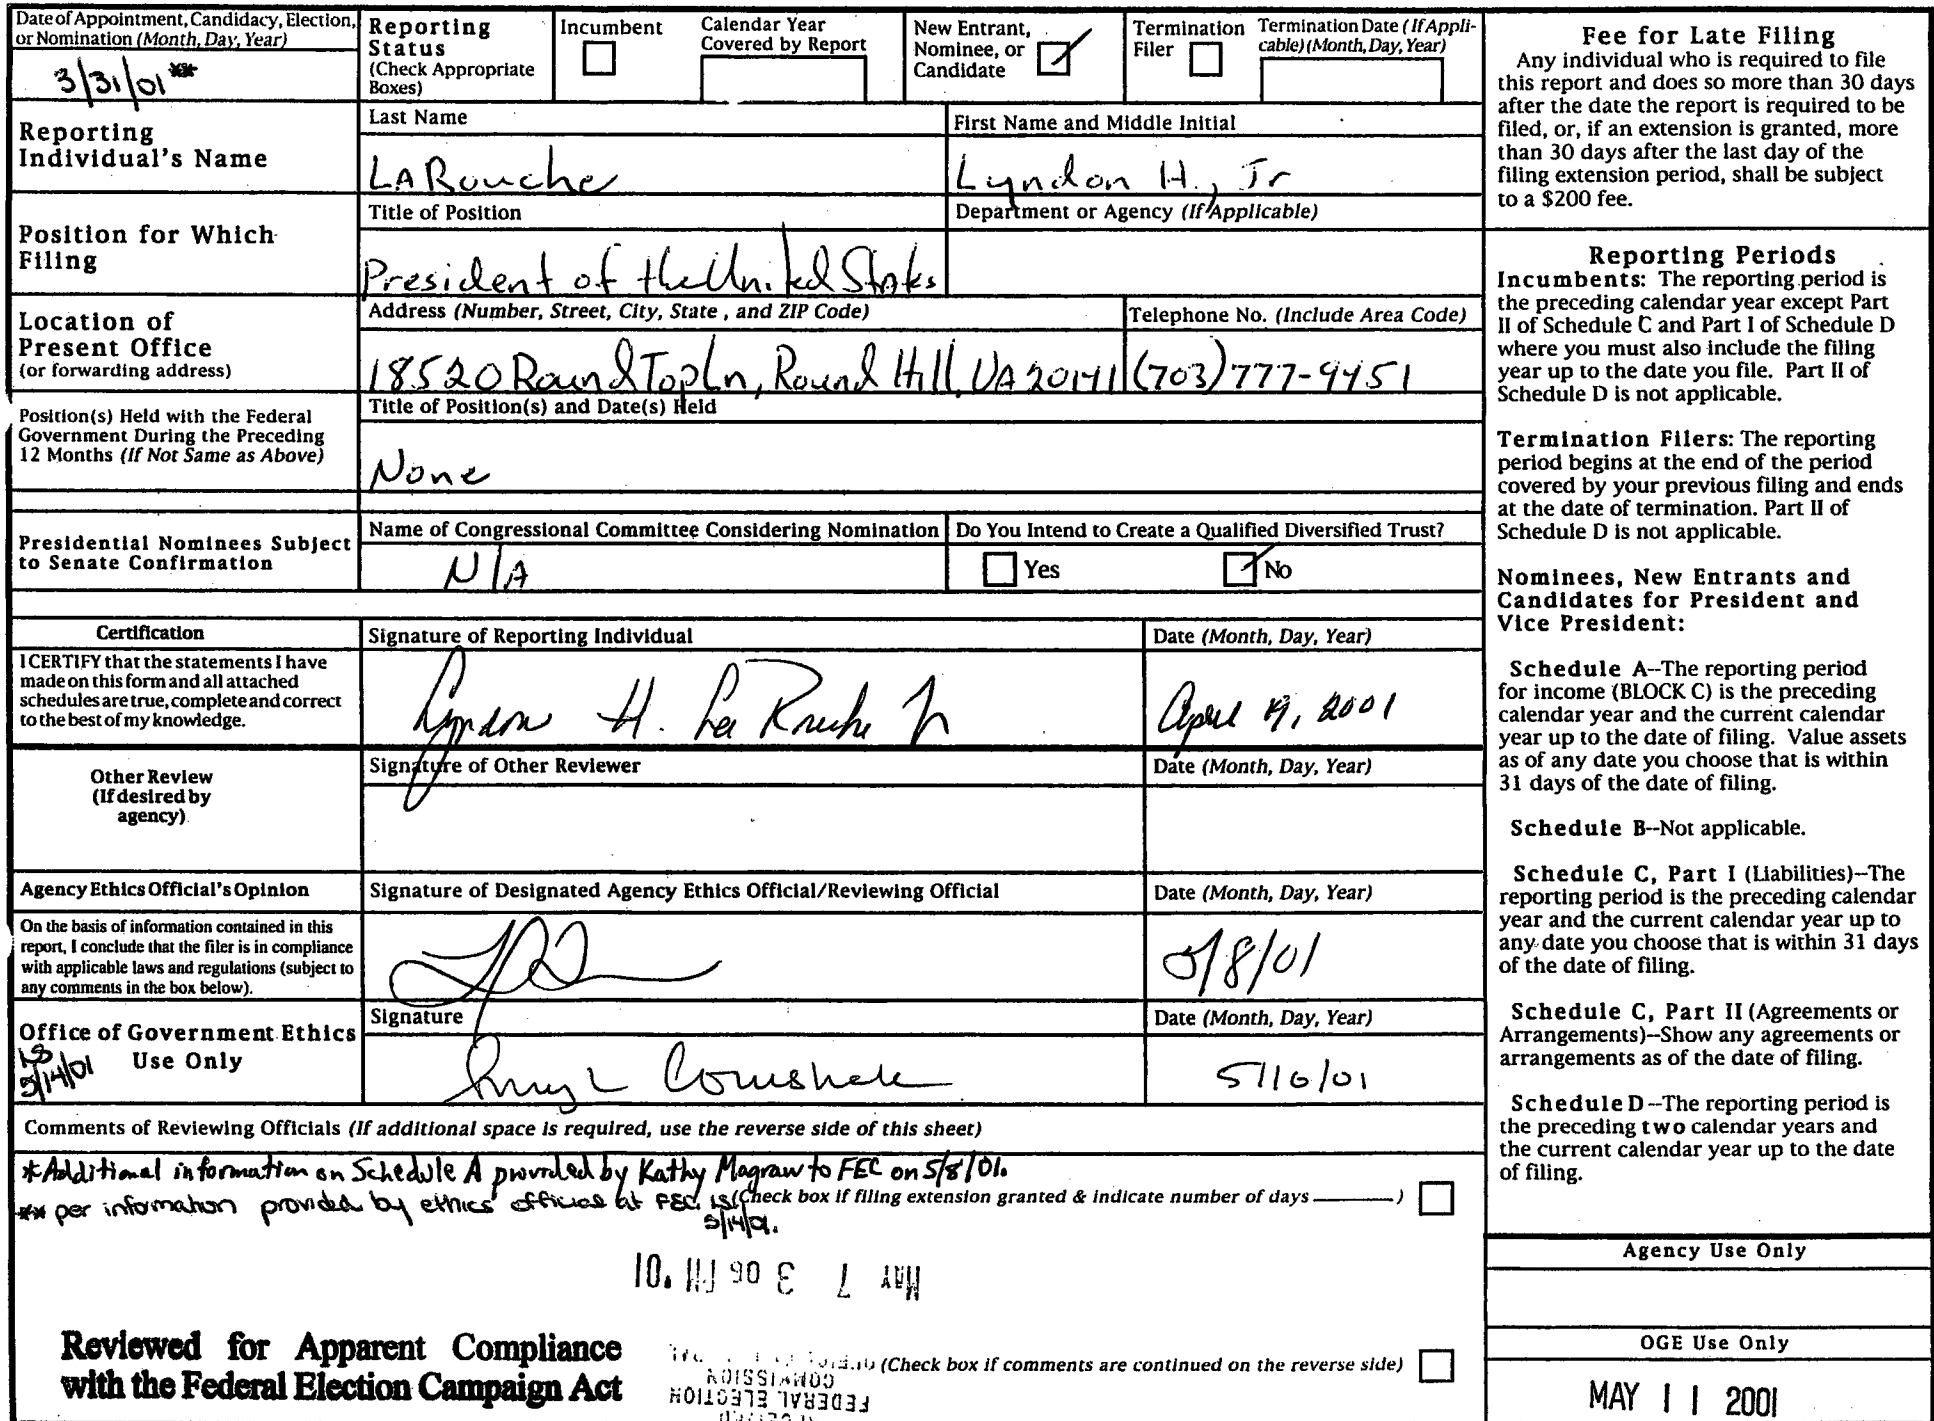 Date of Appointment, Candidacy, Election,
or Nomination (Month, Day, Year)
3/31/01 **
Reporting
Status
(Check Appropriate
Boxes)
Incumbent
Calendar Year
Covered by Report
New Entrant,
Nominee, or
Candidate
Termination
Filer
Termination Date (If Appli-
cable) (Month, Day, Year)
Reporting
Individual's Name
Last Name
LARouche
First Name and Middle Initial
Lyndon H., Jr
Position for Which
Filing
Title of Position
President of the United States
Department or Agency (If Applicable)
Location of
Present Office
(or forwarding address)
Address (Number, Street, City, State , and ZIP Code)
18520 Round Top Ln, Round Hill, VA 20141
Telephone No. (Include Area Code)
(703) 777-9451
Position(s) Held with the Federal
Government During the Preceding
12 Months (If Not Same as Above)
Title of Position(s) and Date(s) Held
None
Presidential Nominees Subject
to Senate Confirmation
Name of Congressional Committee Considering Nomination
N/A
Do You Intend to Create a Qualified Diversified Trust?
Yes
No
Certification
I CERTIFY that the statements I have
made on this form and all attached
schedules are true, complete and correct
to the best of my knowledge.
Signature of Reporting Individual
Lyndon H. LaRouche Jr
Date (Month, Day, Year)
April 19, 2001
Other Review
(If desired by
agency)
Signature of Other Reviewer
Date (Month, Day, Year)
Agency Ethics Official's Opinion
On the basis of information contained in this
report, I conclude that the filer is in compliance
with applicable laws and regulations (subject to
any comments in the box below).
Signature of Designated Agency Ethics Official/Reviewing Official
Date (Month, Day, Year)
5/8/01
Office of Government Ethics
Use Only
LS
5/14/01
Signature
Date (Month, Day, Year)
5/16/01
Comments of Reviewing Officials (If additional space is required, use the reverse side of this sheet)
*Additional information on Schedule A provided by Kathy Magraw to FEC on 5/8/01.
** per information provided by ethics official at FEC. LS
5/14/01.
(Check box if filing extension granted & indicate number of days ________)
MAY 7 3 06 PM '01
Reviewed for Apparent Compliance
with the Federal Election Campaign Act
FEDERAL ELECTION
COMMISSION
(Check box if comments are continued on the reverse side)
Fee for Late Filing
Any individual who is required to file
this report and does so more than 30 days
after the date the report is required to be
filed, or, if an extension is granted, more
than 30 days after the last day of the
filing extension period, shall be subject
to a $200 fee.
Reporting Periods
Incumbents: The reporting period is
the preceding calendar year except Part
II of Schedule C and Part I of Schedule D
where you must also include the filing
year up to the date you file. Part II of
Schedule D is not applicable.
Termination Filers: The reporting
period begins at the end of the period
covered by your previous filing and ends
at the date of termination. Part II of
Schedule D is not applicable.
Nominees, New Entrants and
Candidates for President and
Vice President:
Schedule A--The reporting period
for income (BLOCK C) is the preceding
calendar year and the current calendar
year up to the date of filing. Value assets
as of any date you choose that is within
31 days of the date of filing.
Schedule B--Not applicable.
Schedule C, Part I (Liabilities)--The
reporting period is the preceding calendar
year and the current calendar year up to
any date you choose that is within 31 days
of the date of filing.
Schedule C, Part II (Agreements or
Arrangements)--Show any agreements or
arrangements as of the date of filing.
Schedule D--The reporting period is
the preceding two calendar years and
the current calendar year up to the date
of filing.
Agency Use Only
OGE Use Only
MAY 11 2001